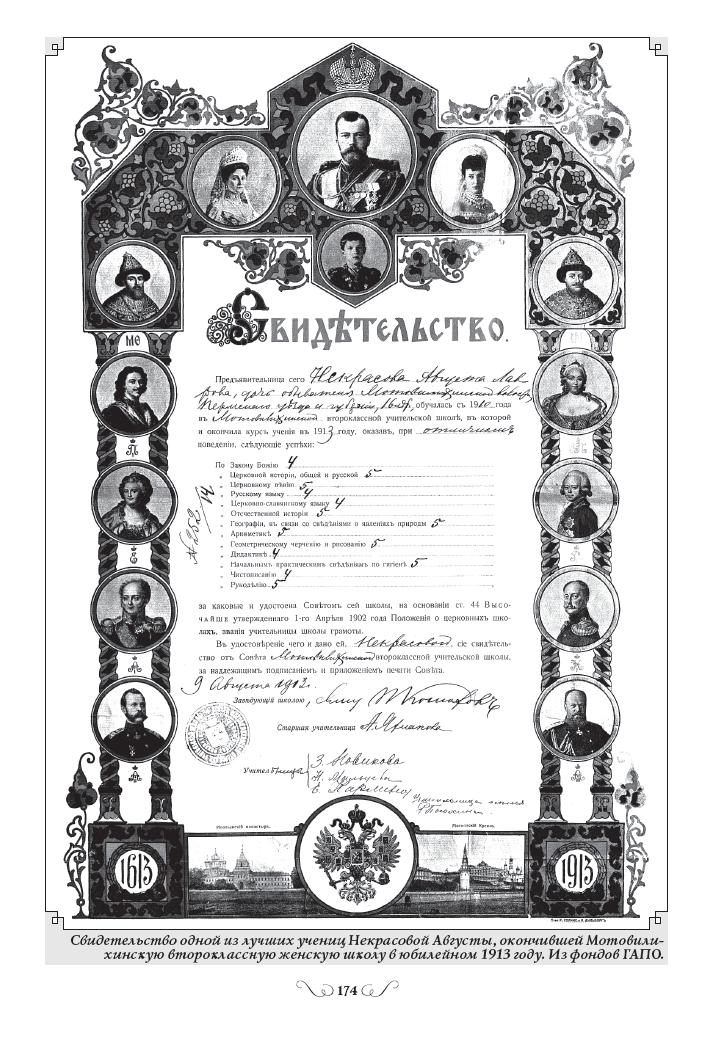 Свидѣтельство.
Предъявительница сего Некрасова Августа Лав
рова, дочь обывателя Мотовилихинскаго завода,
Пермскаго уѣзда и губерніи, обучалась съ 1910 года
въ Мотовилихинской второклассной учительской школѣ, въ которой
и окончила курсъ ученія въ 1913 году, оказавъ, при отличномъ
поведеніи, слѣдующіе успѣхи:
По Закону Божію 4
„ Церковной исторіи, общей и русской 5
„ Церковному пѣнію 5
„ Русскому языку 4
„ Церковно-славянскому языку 4
„ Отечественной исторіи 5
„ Географіи, въ связи со свѣдѣніями о явленіяхъ природы 5
„ Ариѳметикѣ 5
„ Геометрическому черченію и рисованію 5
„ Дидактикѣ 4
„ Начальнымъ практическимъ свѣдѣніямъ по гигіенѣ 5
„ Чистописанію 4
„ Рукодѣлію 5
за каковые и удостоена Совѣтомъ сей школы, на основаніи ст. 44 Высо-
чайше утвержденнаго 1-го Апрѣля 1902 года Положенія о церковныхъ шко-
лахъ, званія учительницы школы грамоты.
Въ удостовѣреніе чего и дано ей, Некрасовой, сіе свидѣтель-
ство отъ Совѣта Мотовилихинской второклассной учительской школы,
за надлежащимъ подписаніемъ и приложеніемъ печати Совѣта.
9 Августа 1913 г.
Завѣдующій школою,
Старшая учительница
Учительницы
З. Новикова
Ипатьевскій монастырь.
Московскій Кремль.
1613
1913
Свидетельство одной из лучших учениц Некрасовой Августы, окончившей Мотовили-
хинскую второклассную женскую школу в юбилейном 1913 году. Из фондов ГАПО.
174